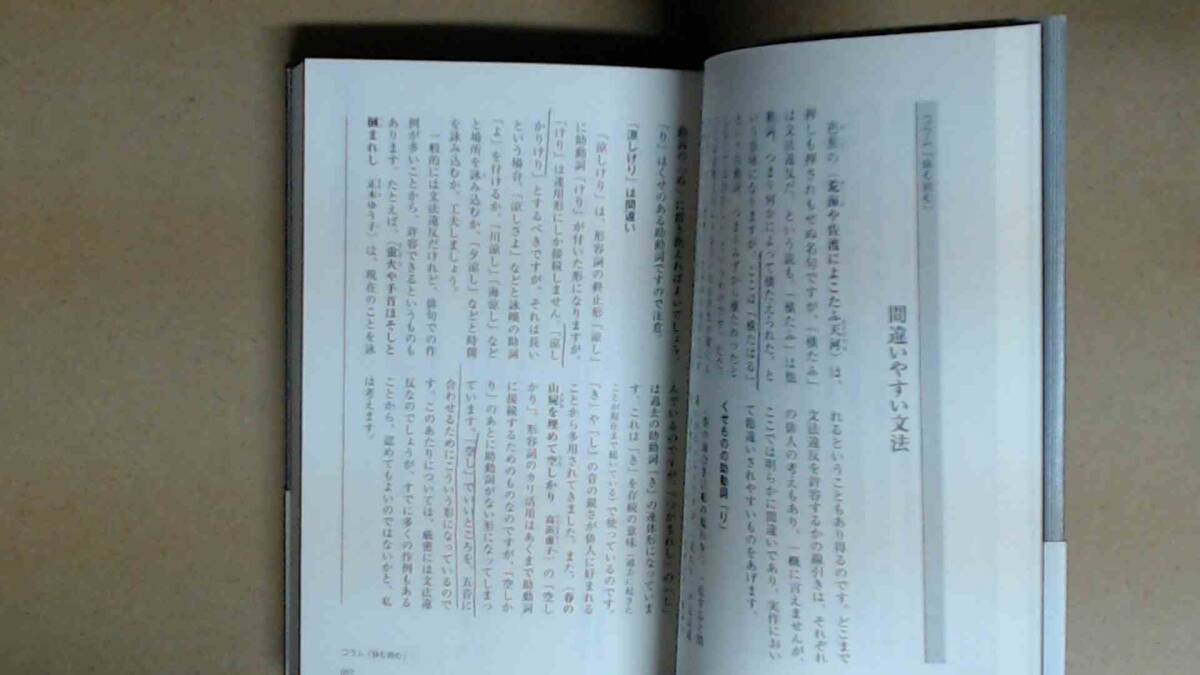 コラム「詠む読む」
間違いやすい文法
芭蕉の〈荒海や佐渡によこたふ天河〉は、
押しも押されもせぬ名句ですが、「横たふ」
は文法違反だ、という説も。「横たふ」は他
動詞、つまり何かによって横たえられた、と
いう意味になりますが、ここは「横たはる」
れるということもあり得るのです。どこまで
文法違反を許容するかの線引きは、それぞれ
の俳人の考えもあり、一概に言えませんが、
ここでは明らかに間違いであり、実作におい
て勘違いされやすいものをあげます。
くせものの助動詞「り」
「り」はくせのある助動詞ですので注意。
「涼しけり」は間違い
「涼しけり」は、形容詞の終止形「涼し」
に助動詞「けり」が付いた形になりますが、
「けり」は連用形にしか接続しません。「涼し
かりけり」とするべきですが、それは長い
という場合、「涼しさよ」などと詠嘆の助詞
「よ」を付けるか、「川涼し」「海涼し」など
と場所を詠み込むか、「夕涼し」などと時間
を詠み込むか、工夫しましょう。
一般的には文法違反だけれど、俳句での作
例が多いことから、許容できるというものも
あります。たとえば、〈蛍火や手首ほそしと
摑まれし 正木ゆう子〉は、現在のことを詠
んでいるのですが「つかまれし」の「し」
は過去の助動詞「き」の連体形になっていま
す。これは「き」を存続の意味（過去に起きた
ことが現在まで続いている）で使っているのです。
「き」や「し」の音の鋭さが俳人に好まれる
ことから多用されてきました。また、〈春の
山屍を埋めて空しかり 高浜虚子〉の「空し
かり」。形容詞のカリ活用はあくまで助動詞
に接続するためのものなのですが、「空しか
り」のあとに助動詞がない形になってしまっ
ています。「空し」でいいところを、五音に
合わせるためにこういう形になっているので
す。このあたりについては、厳密には文法違
反なのでしょうが、すでに多くの作例もある
ことから、認めてもよいのではないかと、私
は考えます。
コラム「詠む読む」